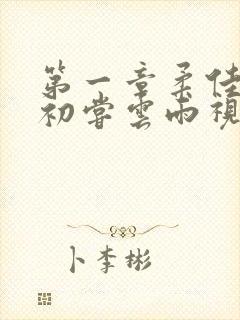 第一章柔佳
初尝云雨视
卜李彬